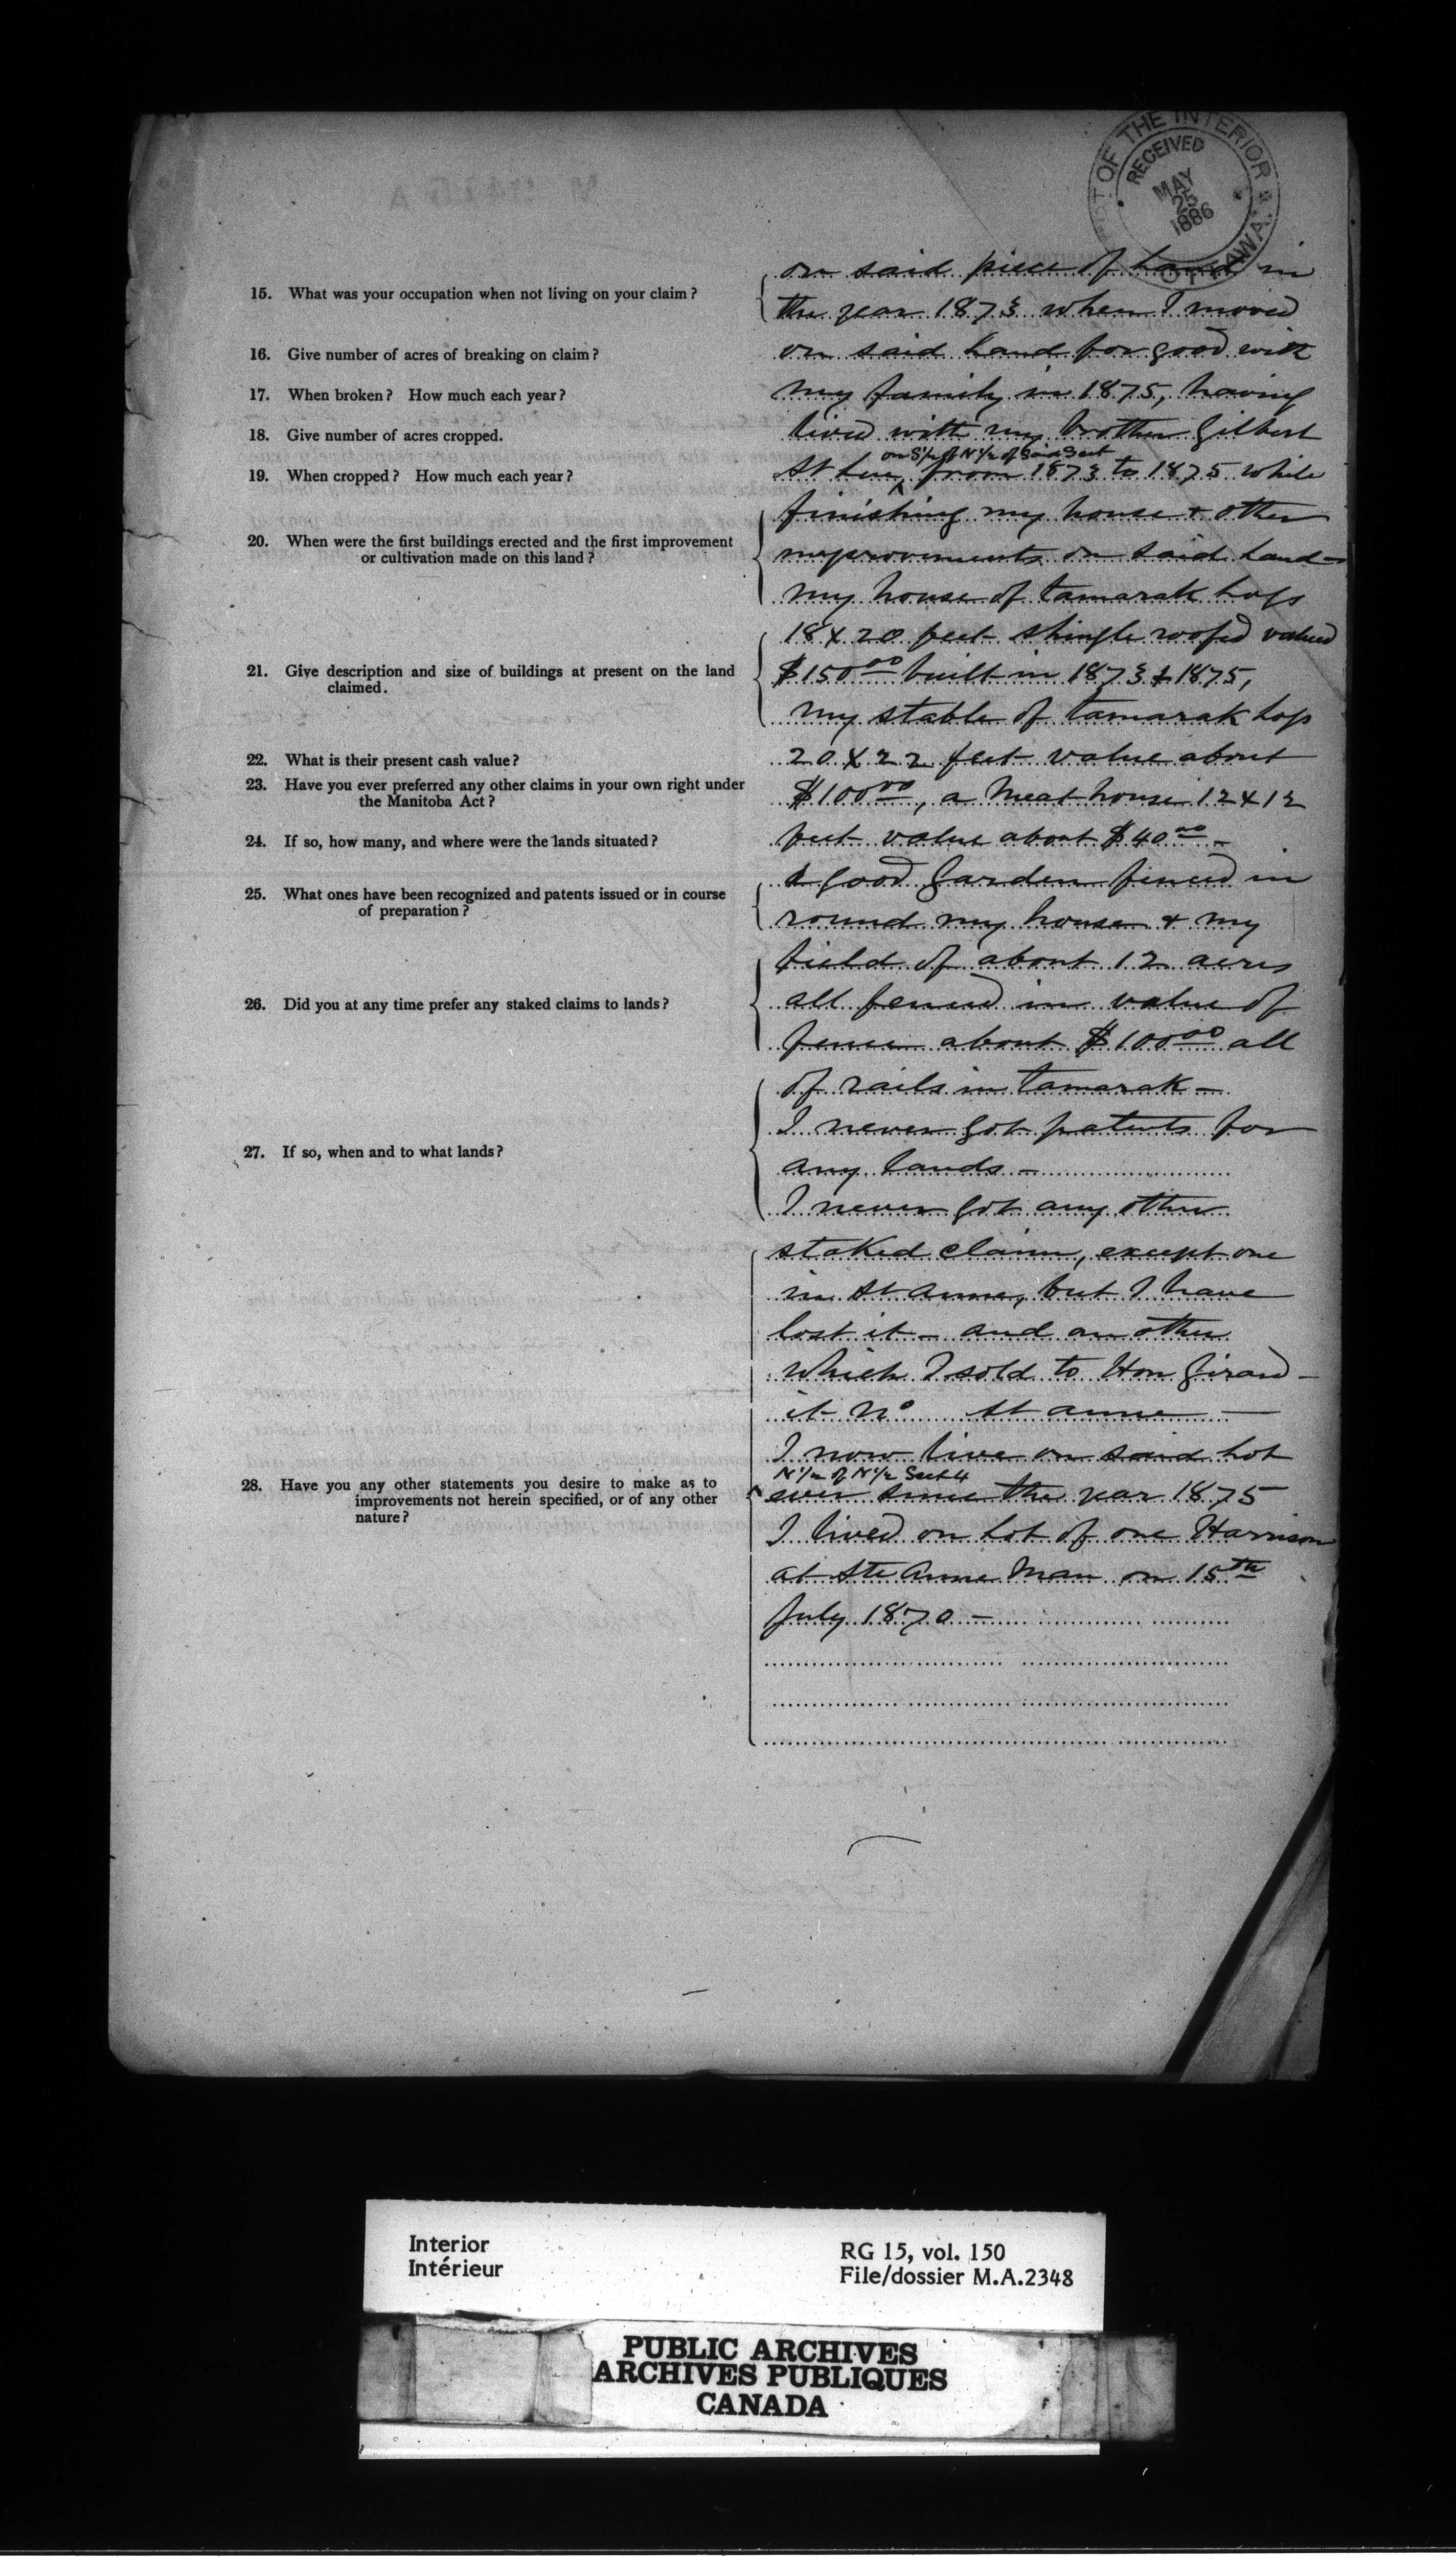 DEPT OF THE INTERIOR
RECEIVED
MAY
25
1886
OTTAWA.
on said piece of Land in
15. What was your occupation when not living on your claim?
the year 1873 when I moved
16. Give number of acres of breaking on claim?
on said Land for good with
17. When broken? How much each year?
my family in 1875, having
18. Give number of acres cropped.
lived with my brother Gilbert
on S½ of N½ of Said Sect
19. When cropped? How much each year?
St Luc, from 1873 to 1875 while
finishing my house & other
20. When were the first buildings erected and the first improvement
or cultivation made on this land?
improvements on said Land -
my house of tamarak Logs
18 x 20 feet shingle roofed valued
21. Give description and size of buildings at present on the land
claimed.
$150.00 built in 1873 & 1875,
my stable of tamarak Logs
22. What is their present cash value?
20 x 22 feet value about
23. Have you ever preferred any other claims in your own right under
the Manitoba Act?
$100.00, a Meat house 12 x 12
24. If so, how many, and where were the lands situated?
feet value about $40.00 -
a good Garden fenced in
25. What ones have been recognized and patents issued or in course
of preparation?
round my house & my
field of about 12 acres
26. Did you at any time prefer any staked claims to lands?
all fenced in value of
fence about $100.00 all
of rails in tamarak -
I never got patents for
27. If so, when and to what lands?
any lands -
I never got any other
staked claim, except one
in St Anne, but I have
lost it - and an other
which I sold to Hon Girard -
it No St Anne -
I now live on said Lot
N½ of N½ Sect 4
28. Have you any other statements you desire to make as to
improvements not herein specified, or of any other
nature?
ever since the year 1875
I lived on Lot of one Harrison
at Ste Anne Man on 15th
July 1870 -
Interior
Intérieur
RG 15, vol. 150
File/dossier M.A.2348
PUBLIC ARCHIVES
ARCHIVES PUBLIQUES
CANADA